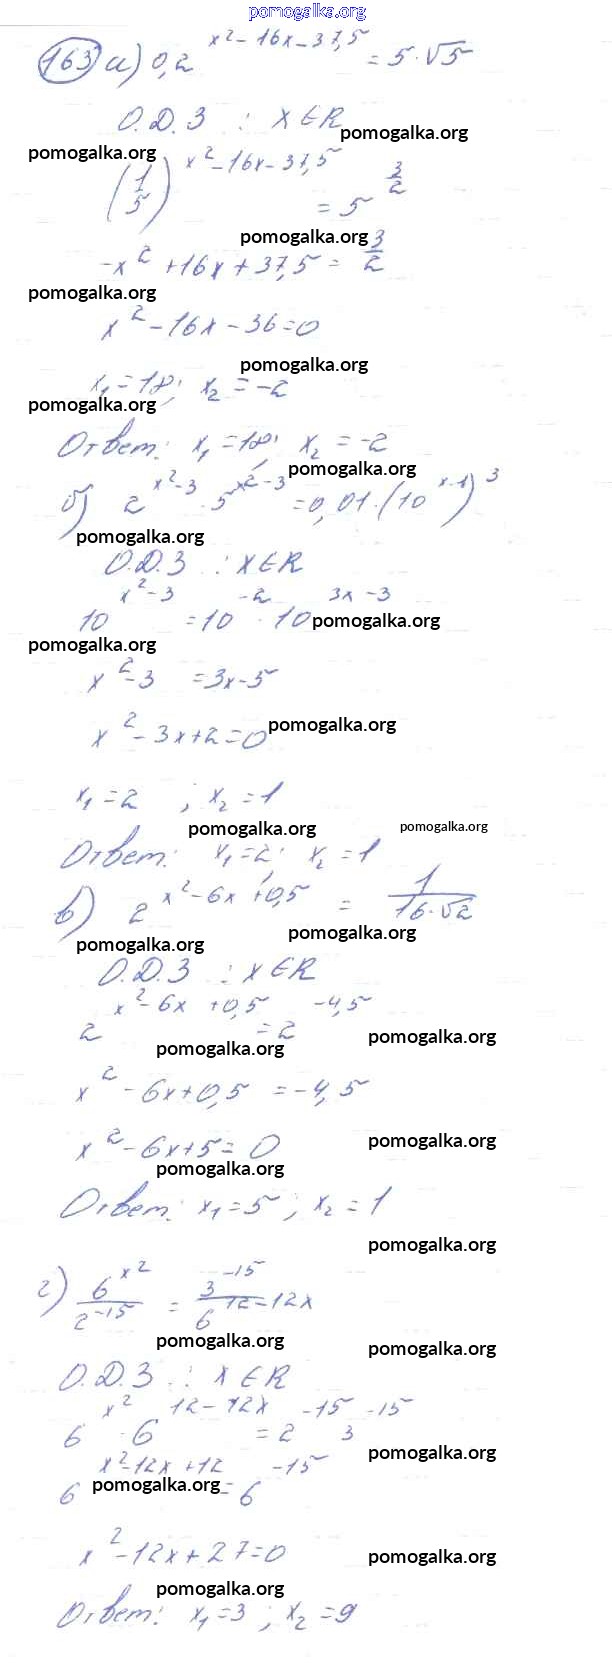 pomogalka.org
163 а) 0,2^(x²-16x-37,5) = 5·√5
О.Д.З : x∈R
pomogalka.org
pomogalka.org
(1/5)^(x²-16x-37,5) = 5^(3/2)
pomogalka.org
-x² +16x+37,5 = 3/2
pomogalka.org
x²-16x-36=0
pomogalka.org
x₁=18; x₂=-2
pomogalka.org
Ответ: x₁=18; x₂=-2
pomogalka.org
б) 2^(x²-3) · 5^(x²-3) = 0,01·(10^(x-1))³
pomogalka.org
О.Д.З : x∈R
10^(x²-3) = 10^(-2) · 10^(3x-3)
pomogalka.org
pomogalka.org
x²-3 = 3x-5
x²-3x+2=0
pomogalka.org
x₁=2 ; x₂=1
pomogalka.org
pomogalka.org
Ответ: x₁=2; x₂=1
в) 2^(x²-6x+0,5) = 1/(16·√2)
pomogalka.org
pomogalka.org
О.Д.З : x∈R
2^(x²-6x+0,5) = 2^(-4,5)
pomogalka.org
pomogalka.org
x²-6x+0,5 = -4,5
x²-6x+5=0
pomogalka.org
pomogalka.org
Ответ: x₁=5; x₂=1
pomogalka.org
г) 6^(x²)/2^(-15) = 3^(-15)/6^(12-12x)
pomogalka.org
pomogalka.org
О.Д.З : x∈R
6^(x²) · 6^(12-12x) = 2^(-15) 3^(-15)
pomogalka.org
6^(x²-12x+12) = 6^(-15)
pomogalka.org
x²-12x+27=0
pomogalka.org
pomogalka.org
Ответ: x₁=3; x₂=9